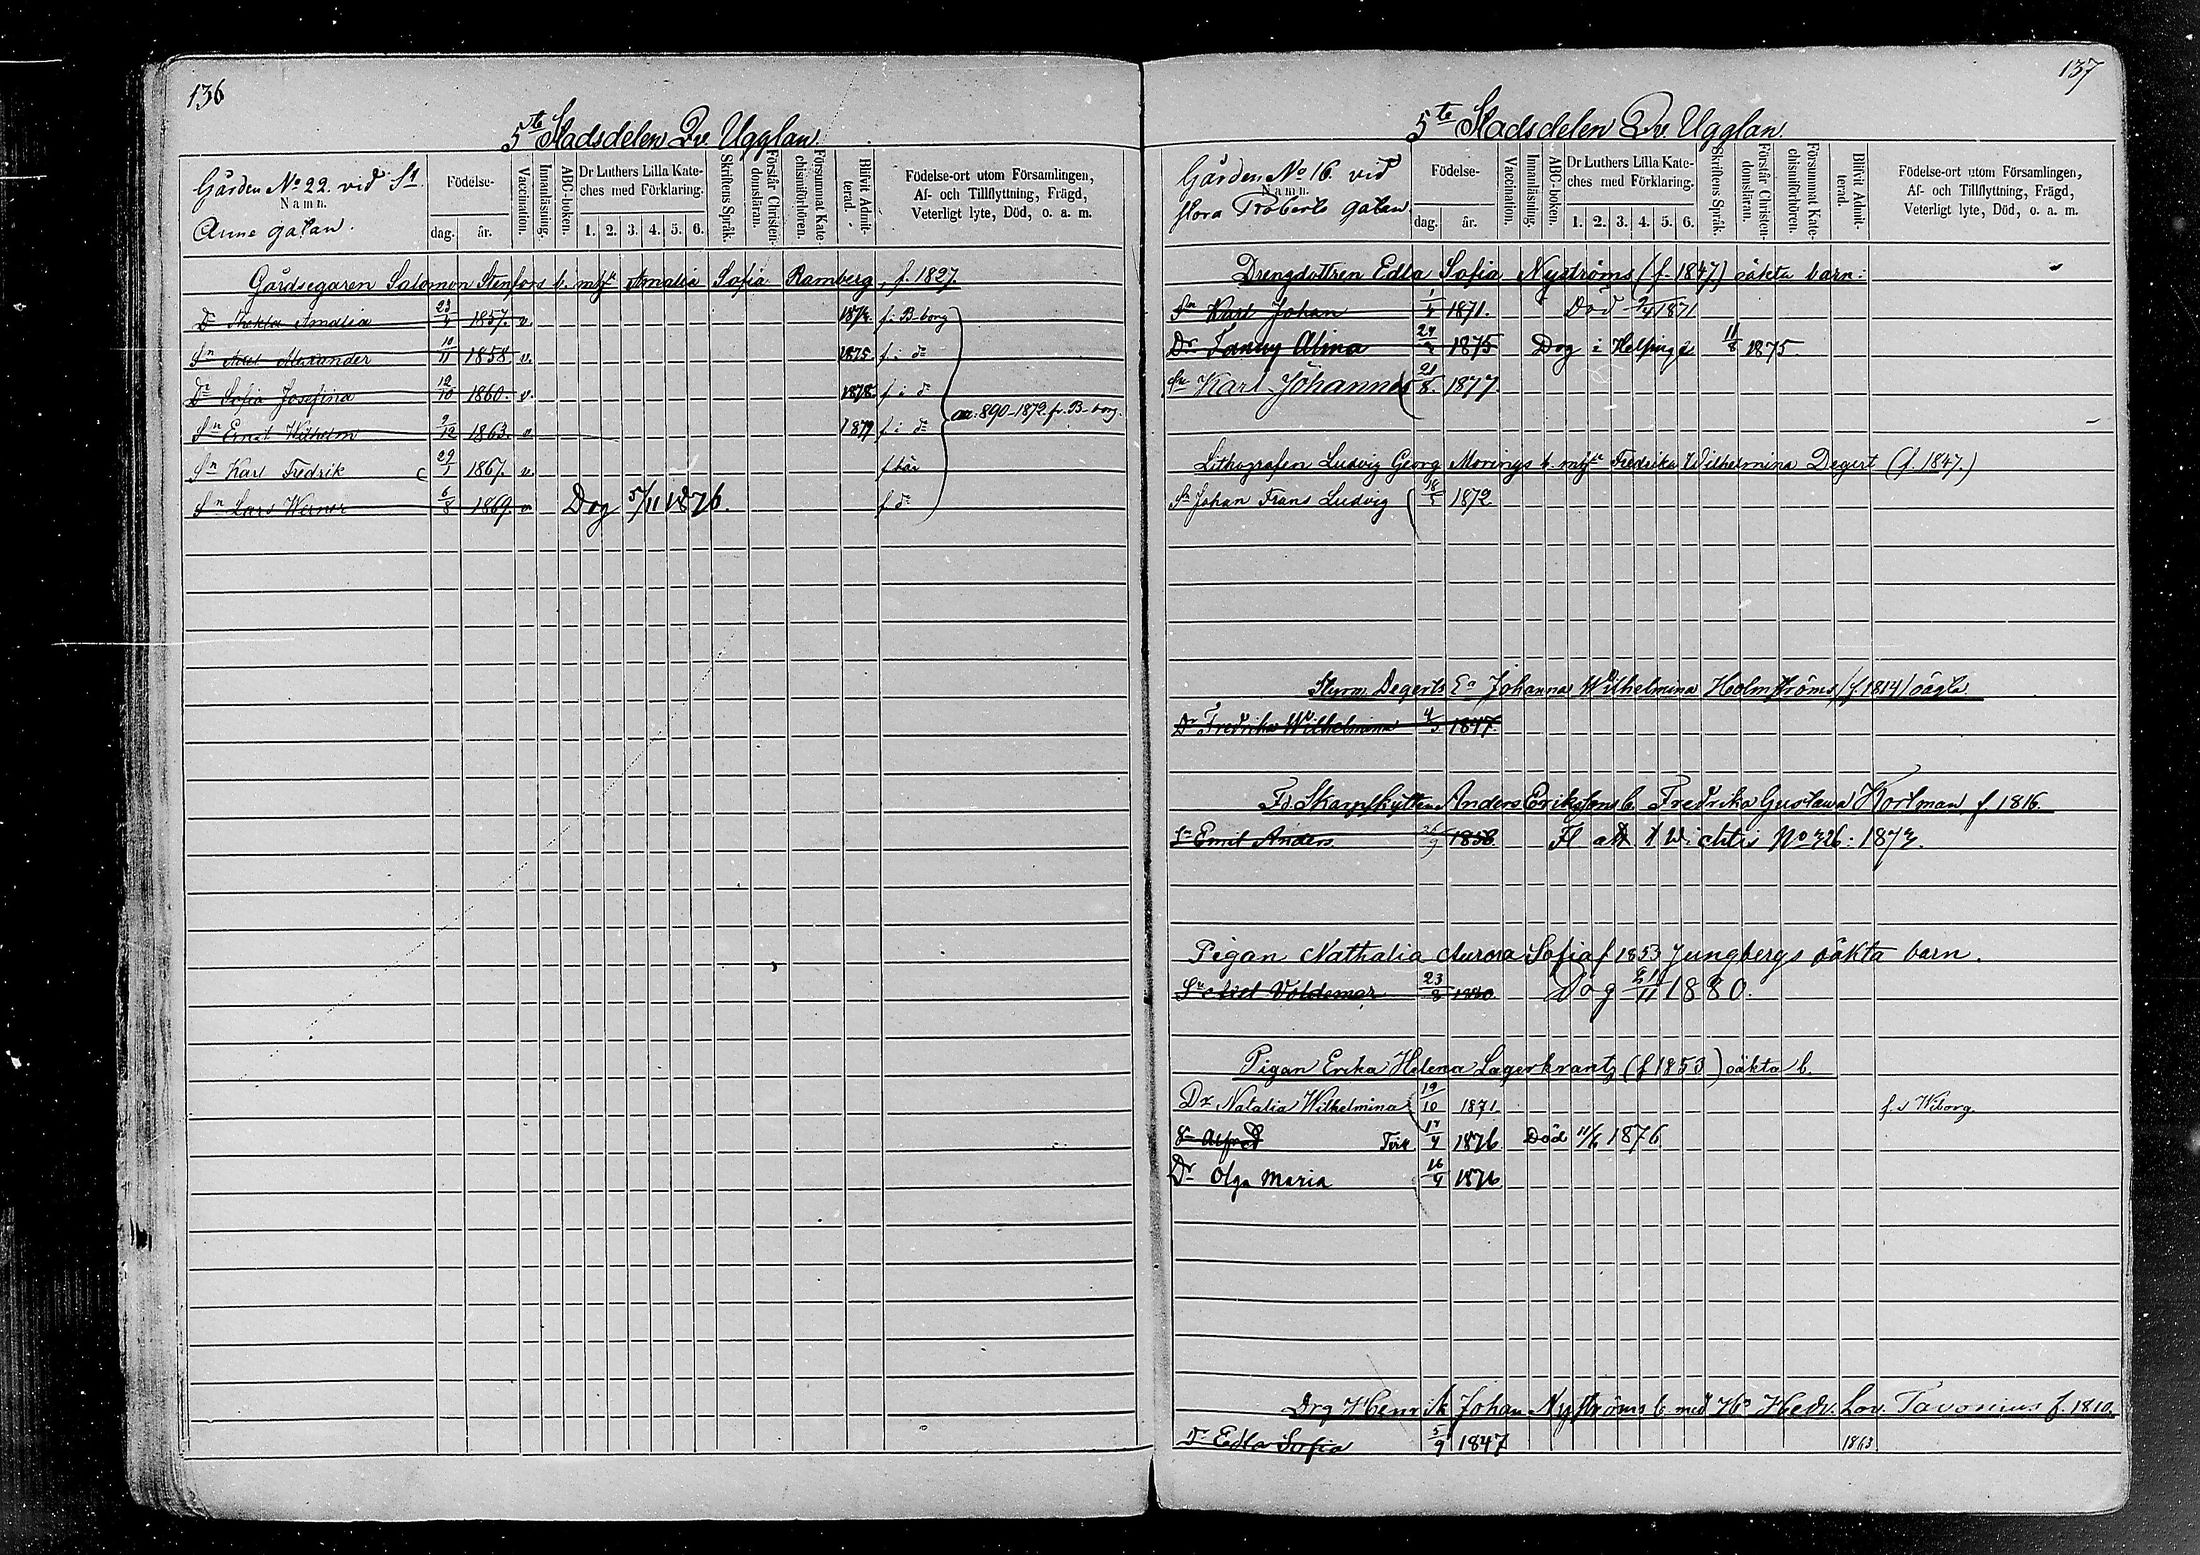 136
5te Stadsdelen Qv. Ugglan.
Gården No 22. vid St
Namn.
Anne gatan.
Födelse-
dag.
år.
Vaccination.
Innanläsning.
ABC-boken.
Dr Luthers Lilla Kate-
ches med Förklaring.
1. 2. 3. 4. 5. 6.
Skriftens Språk.
Förstår Christen-
domsläran.
Försummat Kate-
chismiförhören.
Blifvit Admit-
terad.
Födelse-ort utom Församlingen,
Af- och Tillflyttning, Frägd,
Veterligt lyte, Död, o. a. m.
Gårdsegaren Salomon Stenfors b. m. h. Amalia Sofia Ramberg, f. 1827.
Dr Thekla Amalia 23/4 1857. v. 1874 f. i B-borg
Sn Axel Alexander 10/11 1858 v. 1875 f i do
Dr Sofia Josefina 12/10 1860. v. 1878 f i do
aa: 890-1872 fr. B-borg.
Sn Ernst Wilhelm 9/12 1863. v. 1879 f i do
Sn Karl Fredrik 29/1 1867. v. f här
Sn Lars Werner 6/8 1869. v. Dog 5/11 1876. f do
137
5te Stadsdelen Qv. Ugglan.
Gården No 16 vid
Namn.
stora Roberts gatan.
Födelse-
dag.
år.
Vaccination.
Innanläsning.
ABC-boken.
Dr Luthers Lilla Kate-
ches med Förklaring.
1. 2. 3. 4. 5. 6.
Skriftens Språk.
Förstår Christen-
domsläran.
Försummat Kate-
chismiförhören.
Blifvit Admit-
terad.
Födelse-ort utom Församlingen,
Af- och Tillflyttning, Frägd,
Veterligt lyte, Död, o. a. m.
Drengdottren Edla Sofia Nyströms (f. 1847) oäkta barn:
Sn Karl Johan 1871. Död 2/4 1871
Dr Fanny Alina 1875 Dog i Helsinge 11/8 1875
Sn Karl Johannes 21/8. 1877.
Lithografen Ludvig Georg Morings b. Fredrika Wilhelmina Degert (f. 1847.)
Sn Johan Frans Ludvig 18/5 1872
Styrm Degerts Ea Johanna Wilhelmina Holmströms (f. 1814) oägta
Dr Fredrika Wilhelmina 4/3 1847.
Fd. Skarpskytten Anders Erikssons b. Fredrika Gustava Kortman f 1816.
Sn Emil Anders 1858. Fl att Wichtis No 326: 1873.
Pigan Nathalia Aurora Sofia f 1853 Jungbergs oäkta barn.
Sn Axel Voldemar 23/8 1880 Dog 21/11 1880.
Pigan Erika Helena Lagerkrantz (f 1853) oäkta b.
Dr Natalia Wilhelmina 19/10 1871. f. i Wiborg.
Sn Alfred 17/4 1876 Död 11/6 1876
Dr Olga Maria 16/4 1876
Drg Henrik Johan Nyströms b. med Ho Hedv. Lov. Tavonius f. 1810.
Dr Edla Sofia 5/9 1847 1863.